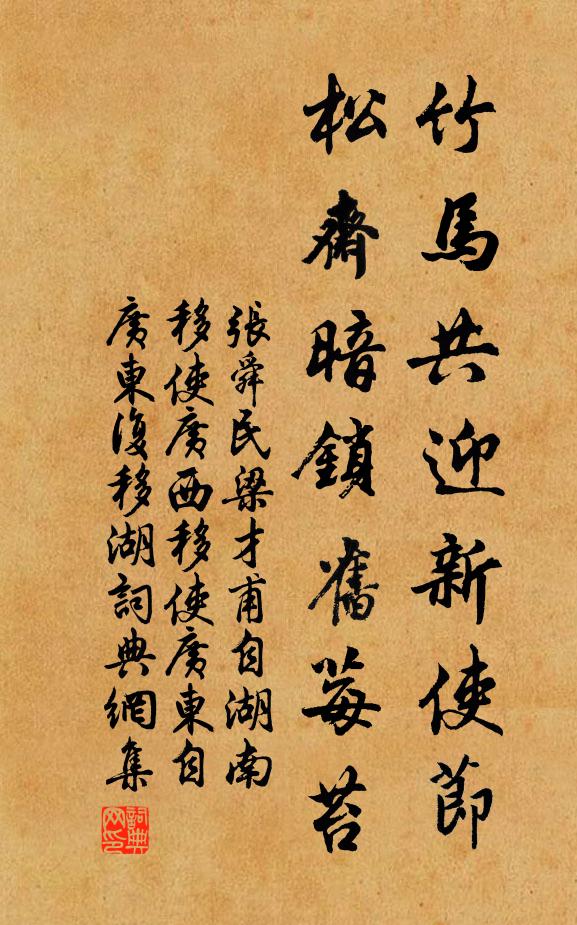 竹馬共迎新使節
松齋暗鎖舊莓苔
張舜民梁才甫自湖南
移使廣西移使廣東自
廣東復移湖詞典網集
詞典网印